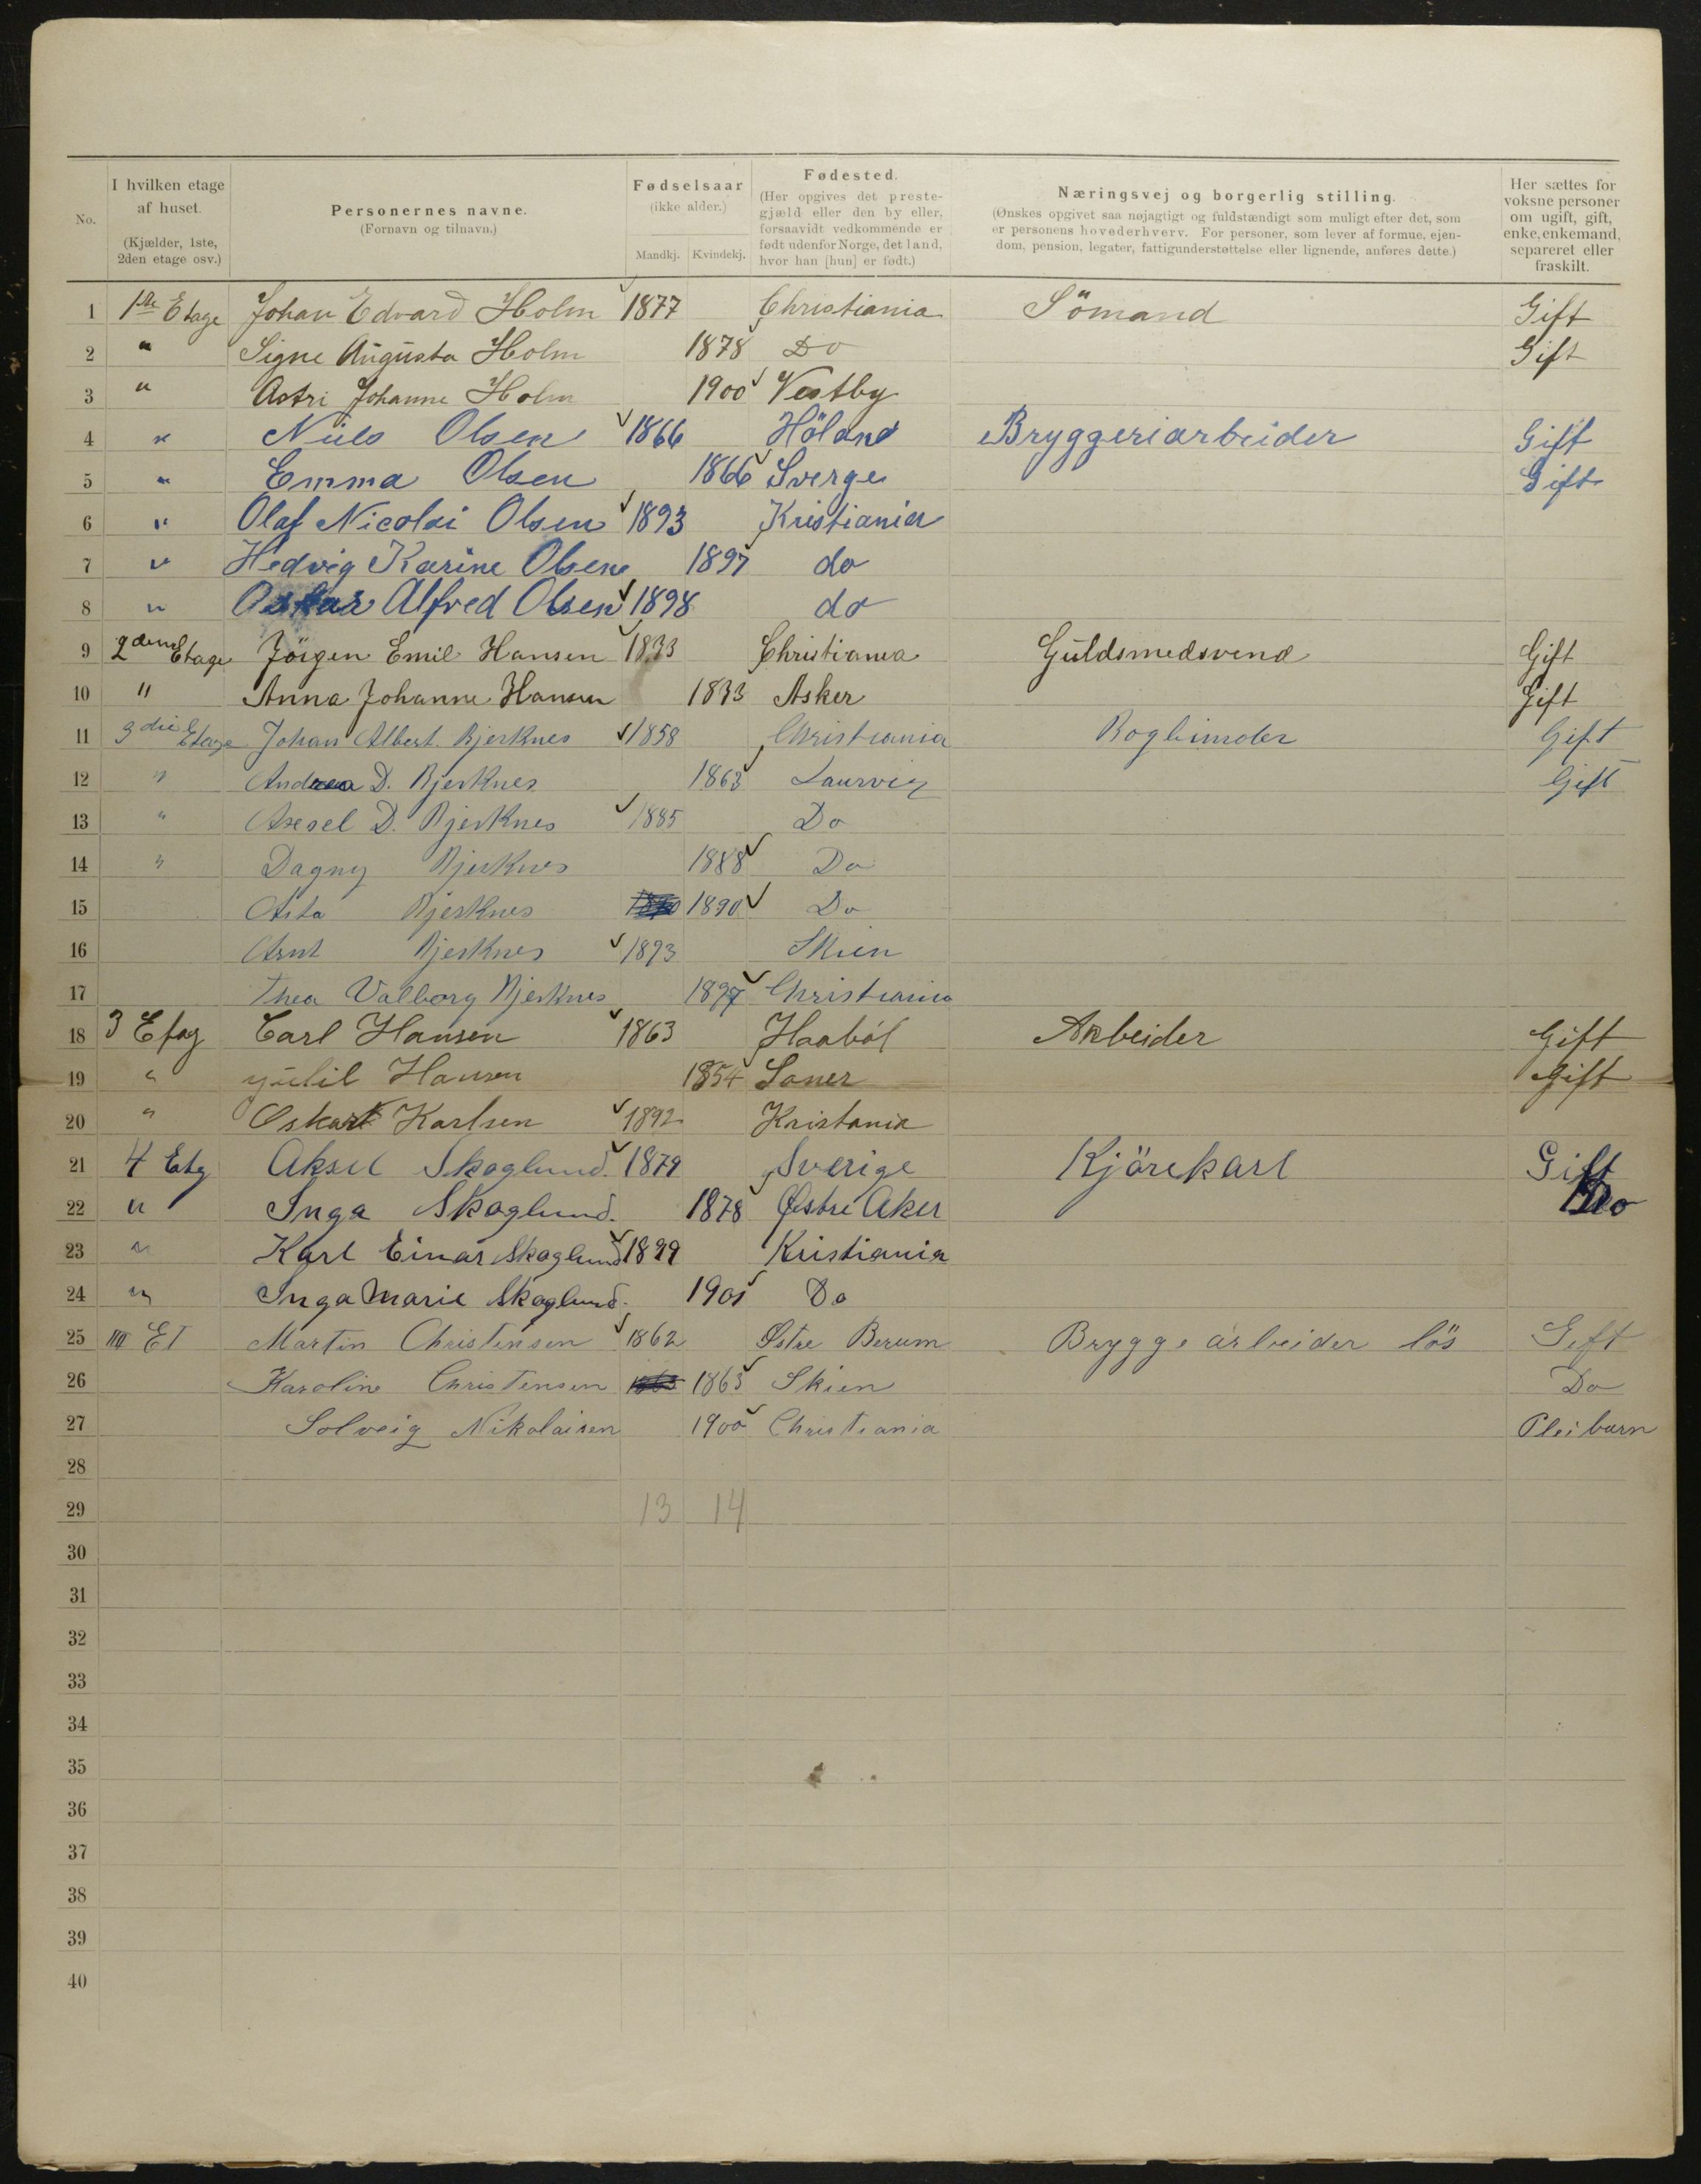 No.
I hvilken etage
af huset.
(Kjælder, 1ste,
2den etage osv.)
Personernes navne.
(Fornavn og tilnavn.)
Fødselsaar
(ikke alder.)
Mandkj. Kvindekj.
Fødested.
(Her opgives det preste-
gjæld eller den by eller,
forsaavidt vedkommende er
født udenfor Norge, det land,
hvor han [hun] er født.)
Næringsvej og borgerlig stilling.
(Ønskes opgivet saa nøjagtigt og fuldstændigt som muligt efter det, som
er personens hovederhverv. For personer, som lever af formue, ejen-
dom, pension, legater, fattigunderstøttelse eller lignende, anføres dette.)
Her sættes for
voksne personer
om ugift, gift,
enke, enkemand,
separeret eller
fraskilt.
1 1ste Etage Johan Edvard Holm 1877 Christiania Sömand Gift
2 " Signe Augusta Holm 1878 Do Gift
3 " Astri Johanne Holm 1900 Vestby
4 " Niels Olsen 1866 Höland Bryggeriarbeider Gift
5 " Emma Olsen 1866 Sverge Gift
6 " Olaf Nicolai Olsen 1893 Kristiania
7 " Hedvig Karine Olsen 1897 do
8 " Oskar Alfred Olsen 1898 do
9 2den Etage Jörgen Emil Hansen 1833 Christiania Guldsmedsvend Gift
10 " Anna Johanne Hansen 1833 Asker Gift
11 3die Etage Johan Albert Bjerknes 1858 Christiania Bogbinder Gift
12 " Andrea D. Bjerknes 1863 Laurvig Gift
13 " Axesel D. Bjerknes 1885 Do
14 " Dagny Bjerknes 1888 Do
15 Asta Bjerknes 1890 Do
16 Arnt Bjerknes 1893 Skien
17 Thea Valborg Bjerknes 1897 Christiania
18 3 Etag Carl Hansen 1863 Haaböl Arbeider Gift
19 " Hansen 1854 Saner Gift
20 " Oskar Karlsen 1892 Kristania
21 4 Etg Aksel Skoglund. 1879 Sverige Kjörekarl Gift
22 " Inga Skoglund. 1878 Østre Aker Do
23 " Karl Einar Skoglund 1899 Kristiania
24 " Inga Marie Skoglund. 1901 Do
25 IIII Et Martin Christensen 1862 Østre Berum Bryggearbeider lös Gift
26 Karoline Christensen 1863 Skien Do
27 Solveig Nikolaisen 1900 Christiania Pleibarn
28
29 13 14
30
31
32
33
34
35
36
37
38
39
40